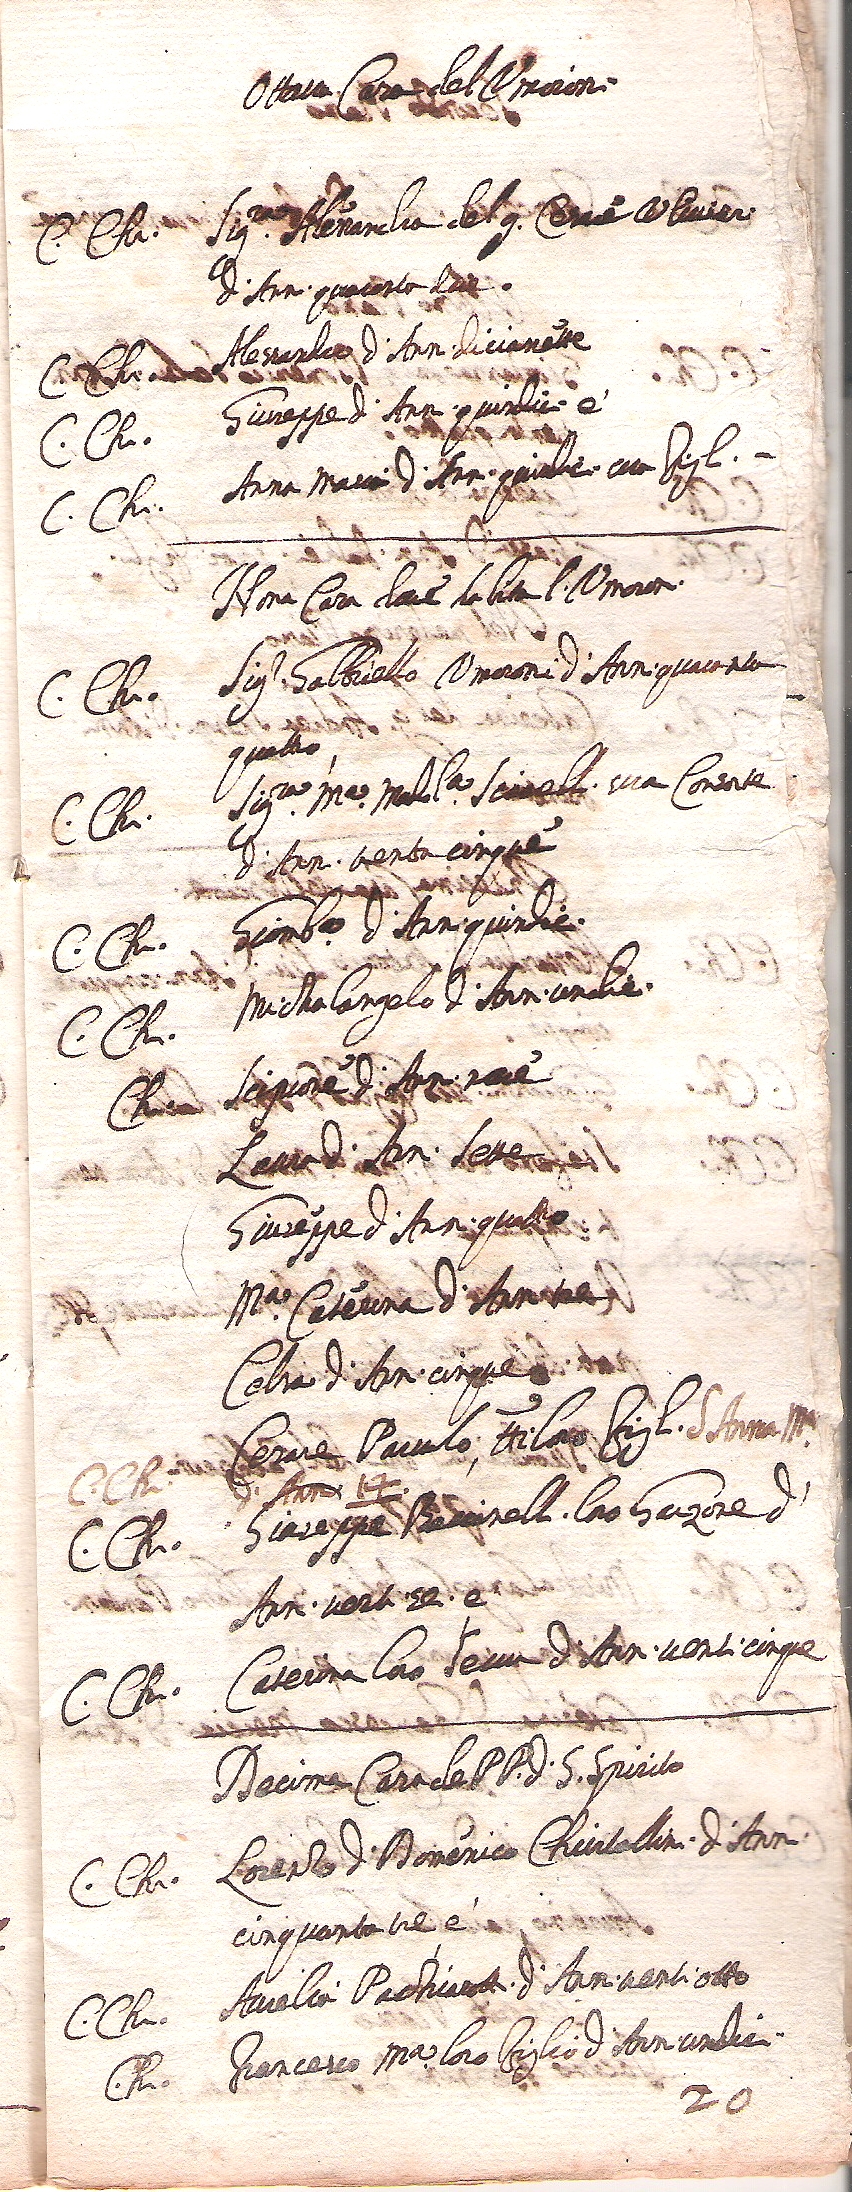 Ottava Casa del Vmoron:
C. Chr. Sig.ra Alesandra del q. Cesare
d'Ann. quaranta due.
C. Chr. Alesandro d'Ann. dicianette
C. Chr. Giuseppe d'Ann. quindic. e'
C. Chr. Anna Maria d'Ann. quindic. sua Figl. -
Nona Casa doue habita l'Vmoron.
C. Chr. Sig.r Gabbriello Vmoroni d'Ann. quaranta
quattro,
C. Chr. Sig.ra M.a Madd.a sua Consorte
d'Ann. trenta cinque
C. Chr. Giomb.a d'Ann. quindic.
C. Chr. Michalangelo d'Ann. undic.
Chr. Scipione d'Ann. noue
Laura d'Ann. Sette
Giuseppe d'Ann. quattro
M.a Caterina d'Ann. tre
d'Ann. cinque
Cesare Pauolo, Figl. S Anna M.a
C. Chr. d'Ann. 14.
C. Chr. Giuseppe loro Garzone d'
Ann. uenti e
C. Chr. Caterina loro Serua d'Ann. uenti cinque
Decima Casa de PP. d. S. Spirito
C. Chr. Lorenzo d. Domenico d'Ann.
cinquanta tre e'
C. Chr. Aurelia d'Ann. uenti otto
Chr. Francesco M.a loro Figlio d'Ann. undic.
20